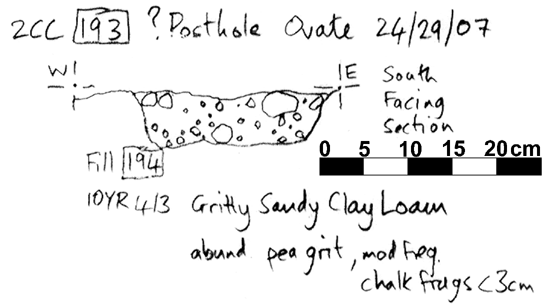 2CC 193 ? Posthole Ovate 24/29/07
W E South
Facing
Section
0 5 10 15 20cm
Fill 194
10YR 4/3 Gritty Sandy Clay Loam
abund pea grit, mod freq.
chalk frags <3cm